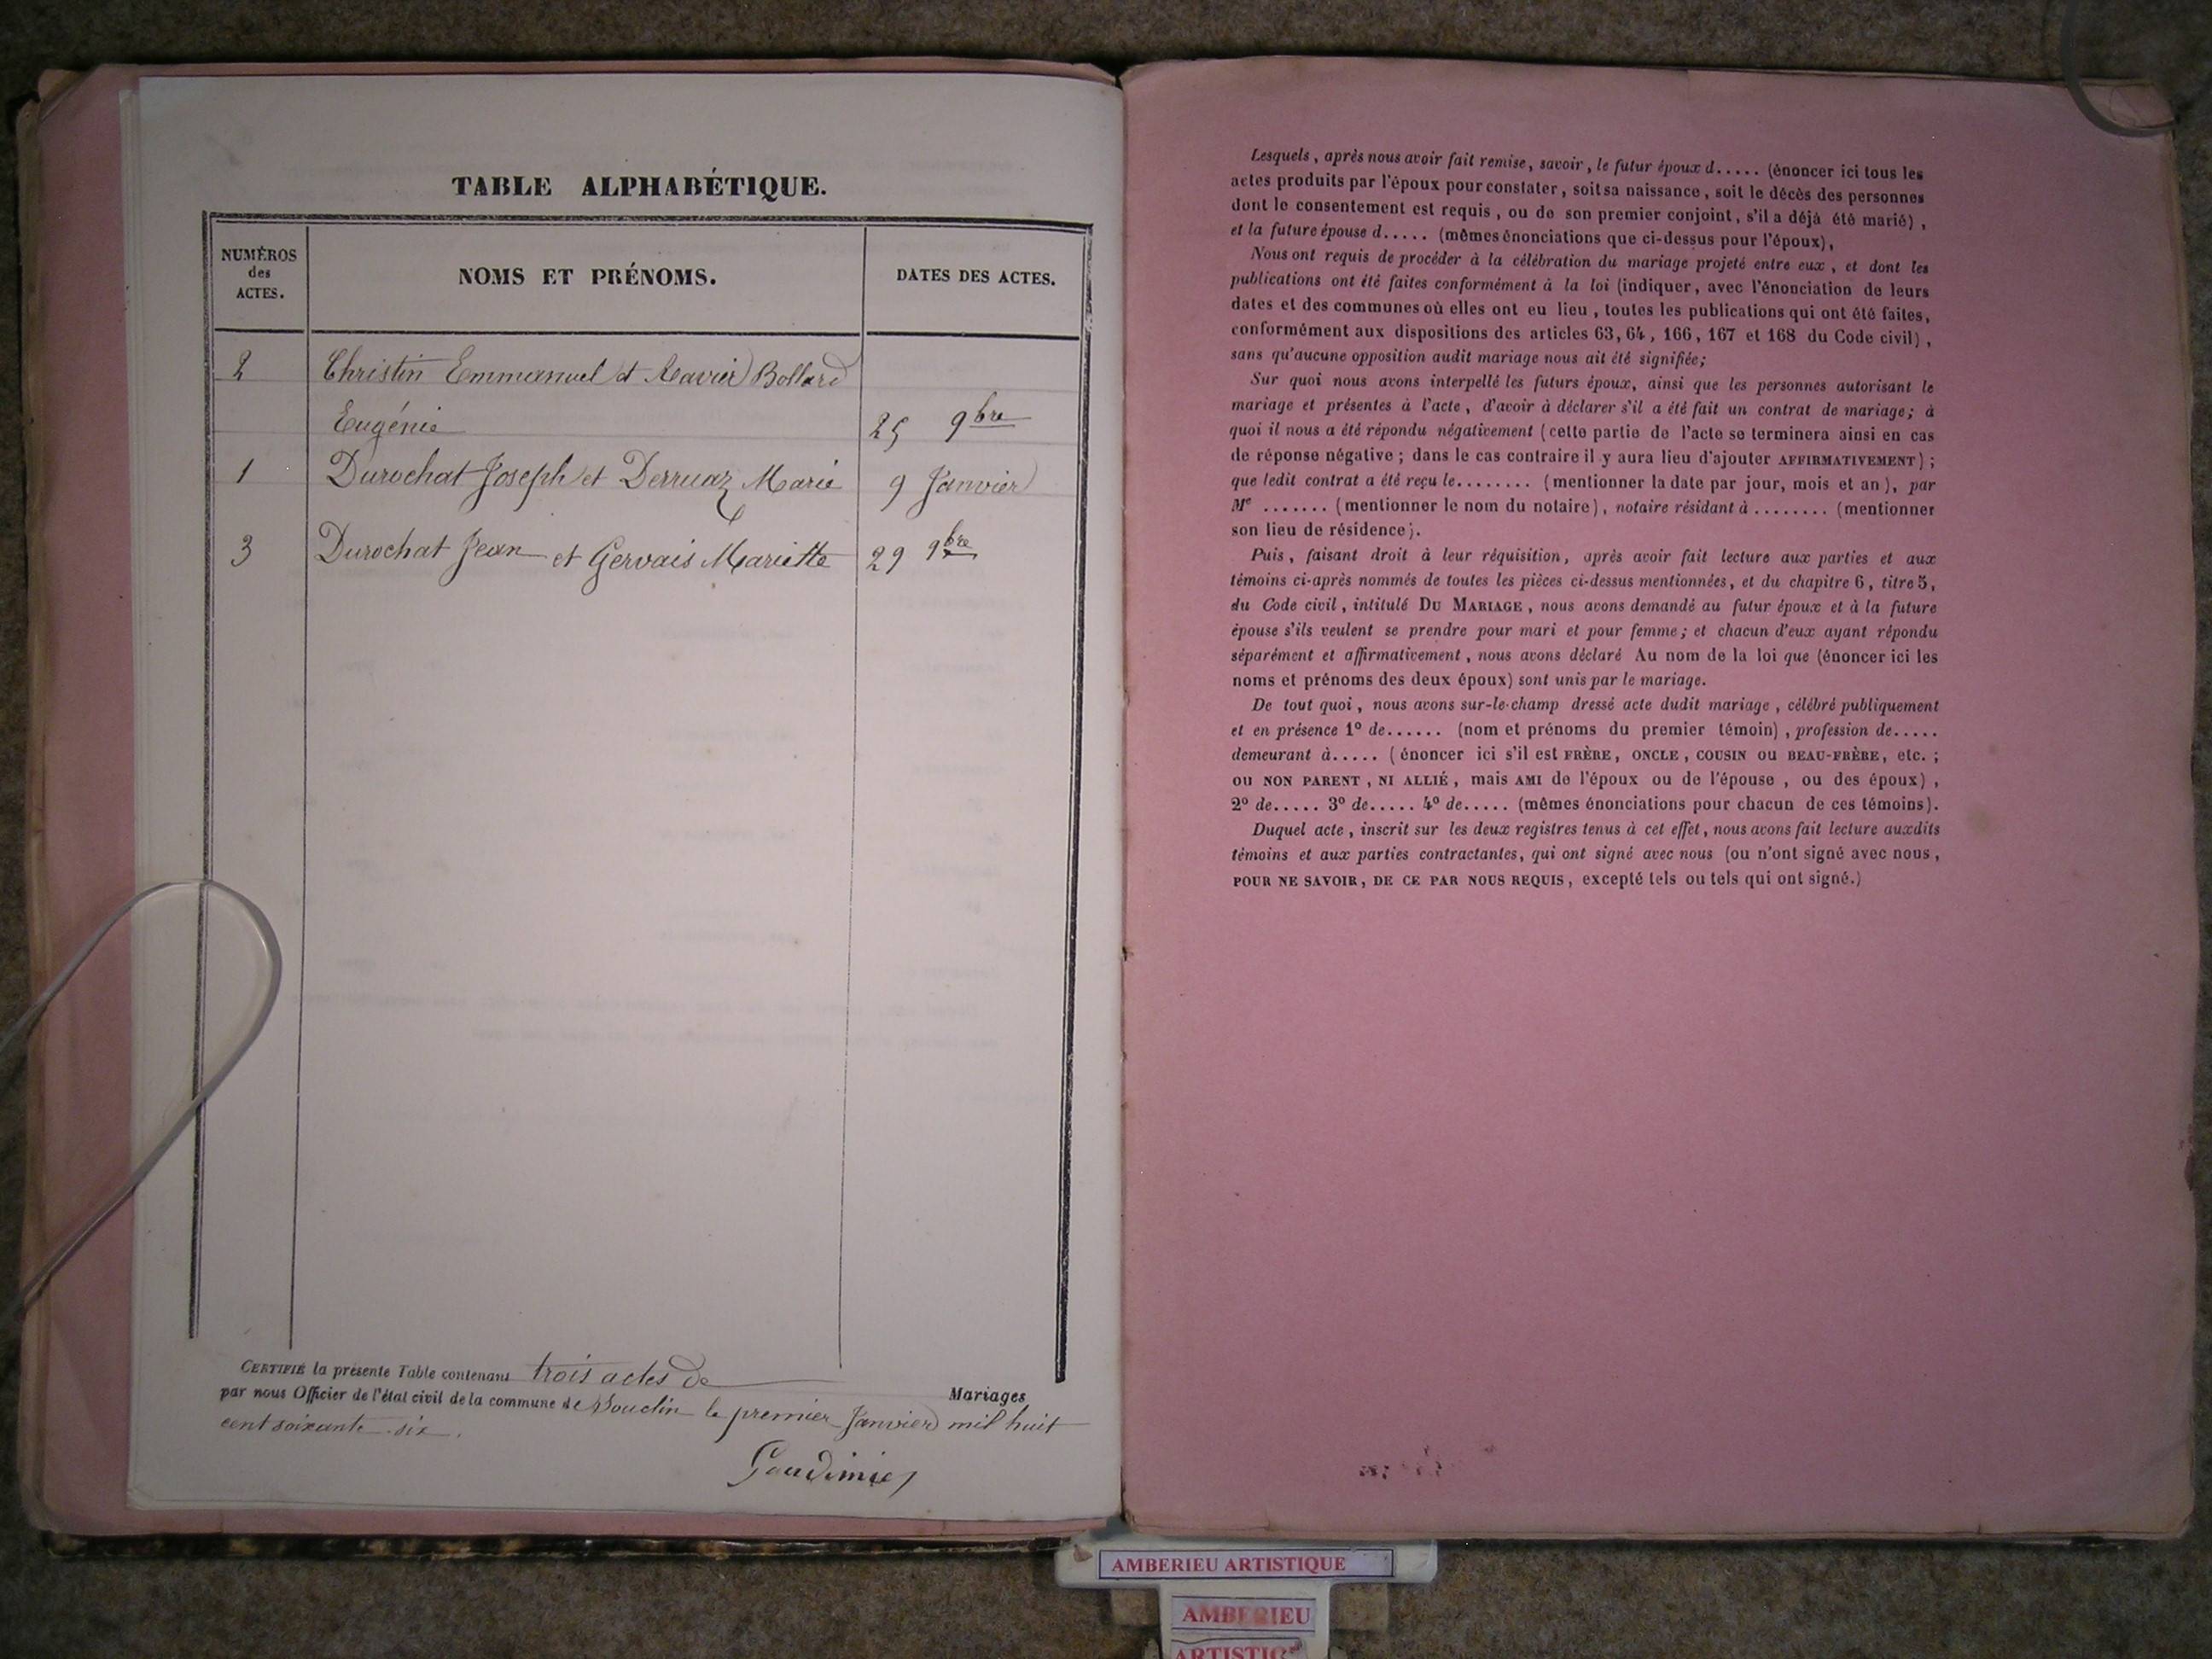 TABLE ALPHABÉTIQUE.
NUMÉROS
des
ACTES.
NOMS ET PRÉNOMS.
DATES DES ACTES.
2 Christin Emmanuel et Xavier Bollard
Eugénie 25 9bre
1 Durochat Joseph et Derruaz Marie 9 Janvier
3 Durochat Jean et Gervais Mariette 29 9bre
CERTIFIÉ la présente Table contenant trois actes de
Mariages
par nous Officier de l'état civil de la commune de le premier Janvier mil huit
cent soixante-six.
Lesquels, après nous avoir fait remise, savoir, le futur époux d..... (énoncer ici tous les
actes produits par l'époux pour constater, soit sa naissance, soit le décès des personnes
dont le consentement est requis, ou de son premier conjoint, s'il a déjà été marié),
et la future épouse d..... (mêmes énonciations que ci-dessus pour l'époux),
Nous ont requis de procéder à la célébration du mariage projeté entre eux, et dont les
publications ont été faites conformément à la loi (indiquer, avec l'énonciation de leurs
dates et des communes où elles ont eu lieu, toutes les publications qui ont été faites,
conformément aux dispositions des articles 63, 64, 166, 167 et 168 du Code civil),
sans qu'aucune opposition audit mariage nous ait été signifiée;
Sur quoi nous avons interpellé les futurs époux, ainsi que les personnes autorisant le
mariage et présentes à l'acte, d'avoir à déclarer s'il a été fait un contrat de mariage; à
quoi il nous a été répondu négativement (cette partie de l'acte se terminera ainsi en cas
de réponse négative; dans le cas contraire il y aura lieu d'ajouter AFFIRMATIVEMENT);
que ledit contrat a été reçu le........ (mentionner la date par jour, mois et an), par
Me ....... (mentionner le nom du notaire), notaire résidant à ........ (mentionner
son lieu de résidence).
Puis, faisant droit à leur réquisition, après avoir fait lecture aux parties et aux
témoins ci-après nommés de toutes les pièces ci-dessus mentionnées, et du chapitre 6, titre 5,
du Code civil, intitulé DU MARIAGE, nous avons demandé au futur époux et à la future
épouse s'ils veulent se prendre pour mari et pour femme; et chacun d'eux ayant répondu
séparément et affirmativement, nous avons déclaré Au nom de la loi que (énoncer ici les
noms et prénoms des deux époux) sont unis par le mariage.
De tout quoi, nous avons sur-le-champ dressé acte dudit mariage, célébré publiquement
et en présence 1º de...... (nom et prénoms du premier témoin), profession de.....
demeurant à..... (énoncer ici s'il est FRÈRE, ONCLE, COUSIN OU BEAU-FRÈRE, etc.;
ou NON PARENT, NI ALLIÉ, mais AMI de l'époux ou de l'épouse, ou des époux),
2º de..... 3º de..... 4º de..... (mêmes énonciations pour chacun de ces témoins).
Duquel acte, inscrit sur les deux registres tenus à cet effet, nous avons fait lecture auxdits
témoins et aux parties contractantes, qui ont signé avec nous (ou n'ont signé avec nous,
POUR NE SAVOIR, DE CE PAR NOUS REQUIS, excepté tels ou tels qui ont signé.)
AMBERIEU ARTISTIQUE
AMBERIEU
ARTISTIQ